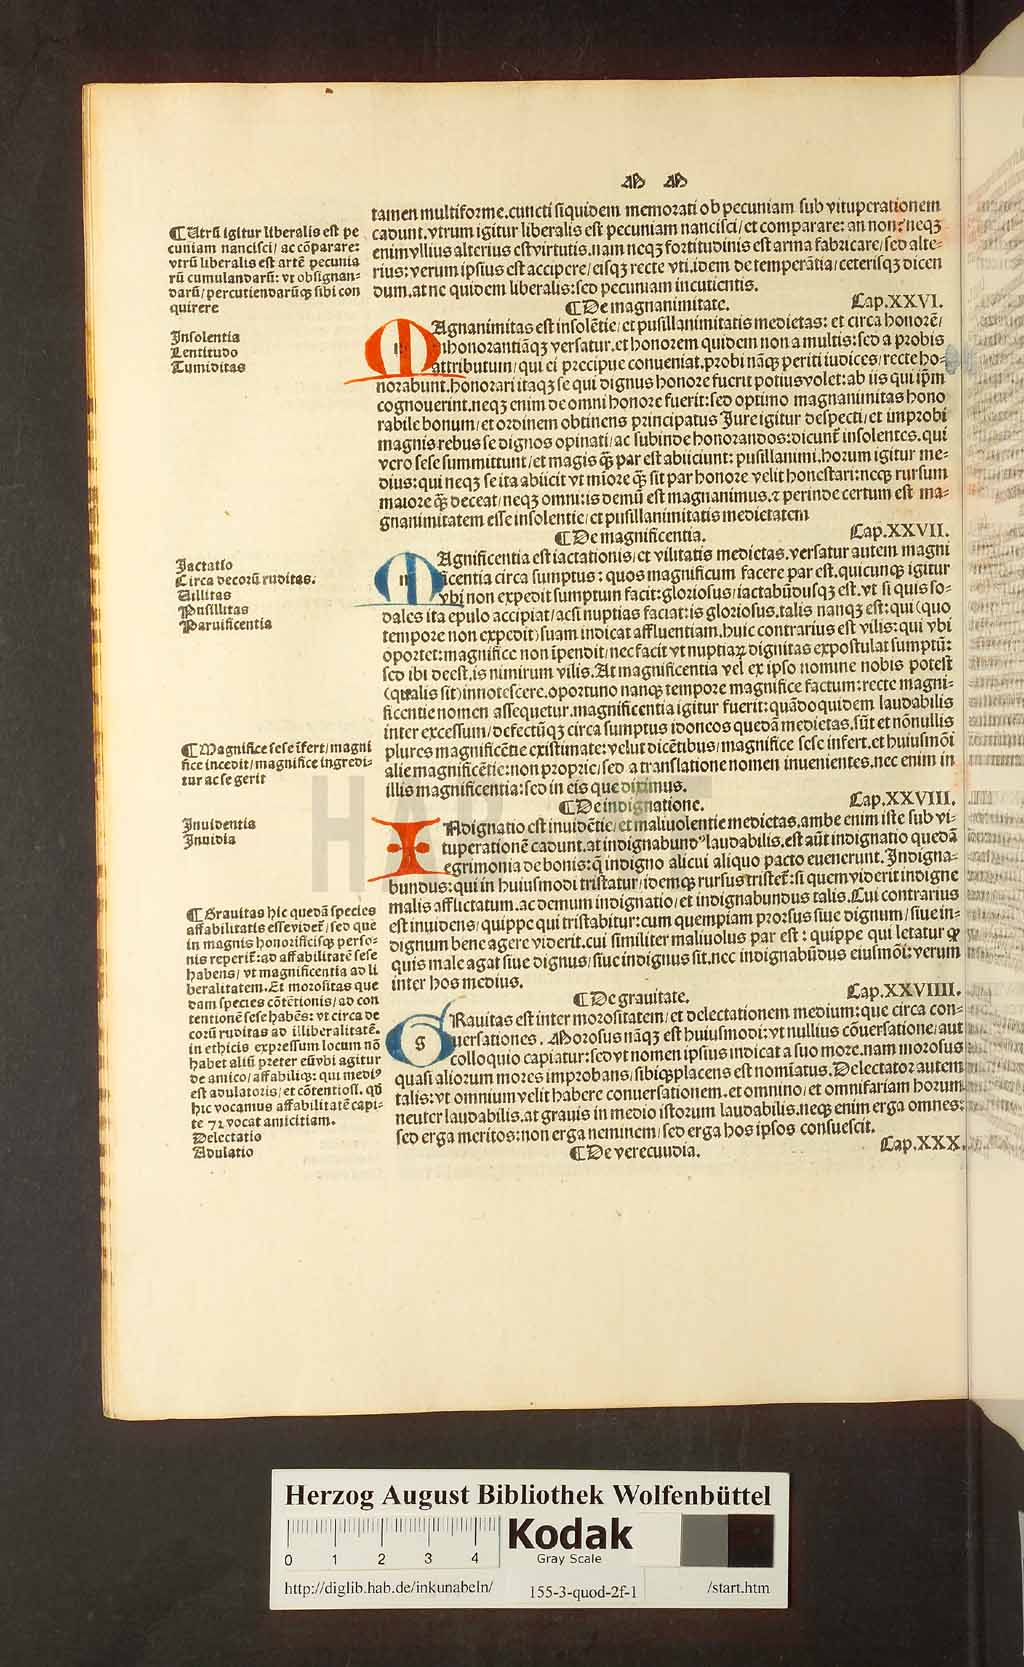 M M
tamen multiforme.cuncti siquidem memorati ob pecuniam sub vituperationem
cadunt.vtrum igitur liberalis est pecuniam nancisci/et comparare: an non:neqꝫ
enim vllius alterius est virtutis.nam neqꝫ fortitudinis est arma fabricare/sed alte-
rius: verum ipsius est accipere/eisqꝫ recte vti.idem de temperātia/ceterisqꝫ dicen
dum.at ne quidem liberalis:sed pecuniam incutientis.
¶Utrū igitur liberalis est pe
cuniam nancisci/ac cōparare:
vtrū liberalis est artē pecunia
rū cumulandarū: vt obsignan-
darū/percutiendarūqꝫ sibi con
quirere
¶De magnanimitate. Cap.XXVI.
MAgnanimitas est insolētie/et pusillanimitatis medietas: et circa honorē/
inhonorantiāqꝫ versatur.et honorem quidem non a multis: sed a probis
attributum/qui ei precipue conueniat.probi nāqꝫ periti iudices/recte ho-
norabunt.honorari itaqꝫ se qui dignus honore fuerit potius volet: ab iis qui ip̄m
cognouerint.neqꝫ enim de omni honore fuerit: sed optimo magnanimitas hono
rabile bonum/et ordinem obtinens principatus Jure igitur despecti/et improbi
magnis rebus se dignos opinati/ac subinde honorandos: dicunt̄ insolentes.qui
vero sese summittunt/et magis ꝙ̄ par est abiiciunt: pusillanimi.horum igitur me-
dius: qui neqꝫ se ita abiicit vt miore ꝙ̄ sit par honore velit honestari: neqꝫ rursum
maiore ꝙ̄ deceat/neqꝫ omni:is demū est magnanimus.⁊ perinde certum est ma-
gnanimitatem esse insolentie/et pusillanimitatis medietatem
Insolentia
Lentitudo
Tumiditas
¶De magnificentia. Cap.XXVII.
MAgnificentia est iactationis/et vilitatis medietas.versatur autem magni
ficentia circa sumptus: quos magnificum facere par est.quicunqꝫ igitur
vbi non expedit sumptum facit: gloriosus/iactabūdusqꝫ est.vt si quis so-
dales ita epulo accipiat/acsi nuptias faciat: is gloriosus.talis nanqꝫ est: qui (quo
tempore non expedit) suam indicat affluentiam.huic contrarius est vilis: qui vbi
oportet:magnifice non īpendit/nec facit vt nuptiaꝝ dignitas expostulat sumptū:
sed ibi deest.is nimirum vilis.At magnificentia vel ex ipso nomine nobis potest
(qualis sit)innotescere.oportuno nanqꝫ tempore magnifice factum: recte magni-
ficentie nomen assequetur.magnificentia igitur fuerit: quādoquidem laudabilis
inter excessum/defectūqꝫ circa sumptus idoneos quedā medietas.sūt et nōnullis
plures magnificētie existimate: velut dicētibus/magnifice sese infert.et huiusmōi
alie magnificētie: non proprie/sed a translatione nomen inuenientes.nec enim in
illis magnificentia: sed in eis que diximus.
Jactatio
Circa decorū ruditas.
Uillitas
Pusillitas
Paruificentia
¶Magnifice sese īfert/magni
fice incedit/magnifice ingredi-
tur ac se gerit
¶De indignatione. Cap.XXVIII.
INdignatio est inuidētie/et maliuolentie medietas.ambe enim iste sub vi-
tuperationē cadunt.at indignabundꝰ laudabilis.est aūt indignatio quedā
egrimonia de bonis: ꝙ̄ indigno alicui aliquo pacto euenerunt.Indigna-
bundus: qui in huiusmodi tristatur/idemqꝫ rursus tristet̄: si quem viderit indigne
malis afflictatum.ac demum indignatio/et indignabundus talis.Cui contrarius
est inuidens/quippe qui tristabitur: cum quempiam prorsus siue dignum/siue in-
dignum bene agere viderit.cui similiter maliuolus par est: quippe qui letatur ꝙ
quis male agat siue dignus/siue indignus sit.nec indignabūdus eiusmōi: verum
inter hos medius.
Inuidentia
Inuidia
¶De grauitate. Cap.XXVIIII.
GRauitas est inter morositatem/et delectationem medium: que circa con-
uersationes. Morosus nāqꝫ est huiusmodi: vt nullius cōuersatione/aut
colloquio capiatur: sed vt nomen ipsius indicat a suo more.nam morosus
quasi aliorum mores improbans/sibiqꝫ placens est nomīatus.Delectator autem
talis: vt omnium velit habere conuersationem.et omnino/et omnifariam horum
neuter laudabilis.at grauis in medio istorum laudabilis.neqꝫ enim erga omnes:
sed erga meritos: non erga neminem/sed erga hos ipsos consuescit.
¶Grauitas hic quedā species
affabilitatis esse videt̄/sed que
in magnis honorificisqꝫ perso-
nis reperit̄: ad affabilitatē sese
habens/vt magnificentia ad li
beralitatem.Et morositas que
dam species cōtētionis/ad con
tentionē sese habēs: vt circa de
corū ruditas ad illiberalitatē.
in ethicis expressum locum nō
habet aliū preter eū vbi agitur
de amico/affabiliqꝫ: qui mediꝰ
est adulatoris/et cōtentiosi. qđ
hic vocamus affabilitatē capi-
te 71 vocat amicitiam.
Delectatio
Adulatio
¶De verecundia. Cap.XXX.
Herzog August Bibliothek Wolfenbüttel
0 1 2 3 4
Kodak
Gray Scale
http://diglib.hab.de/inkunabeln/ 155-3-quod-2f-1 /start.htm